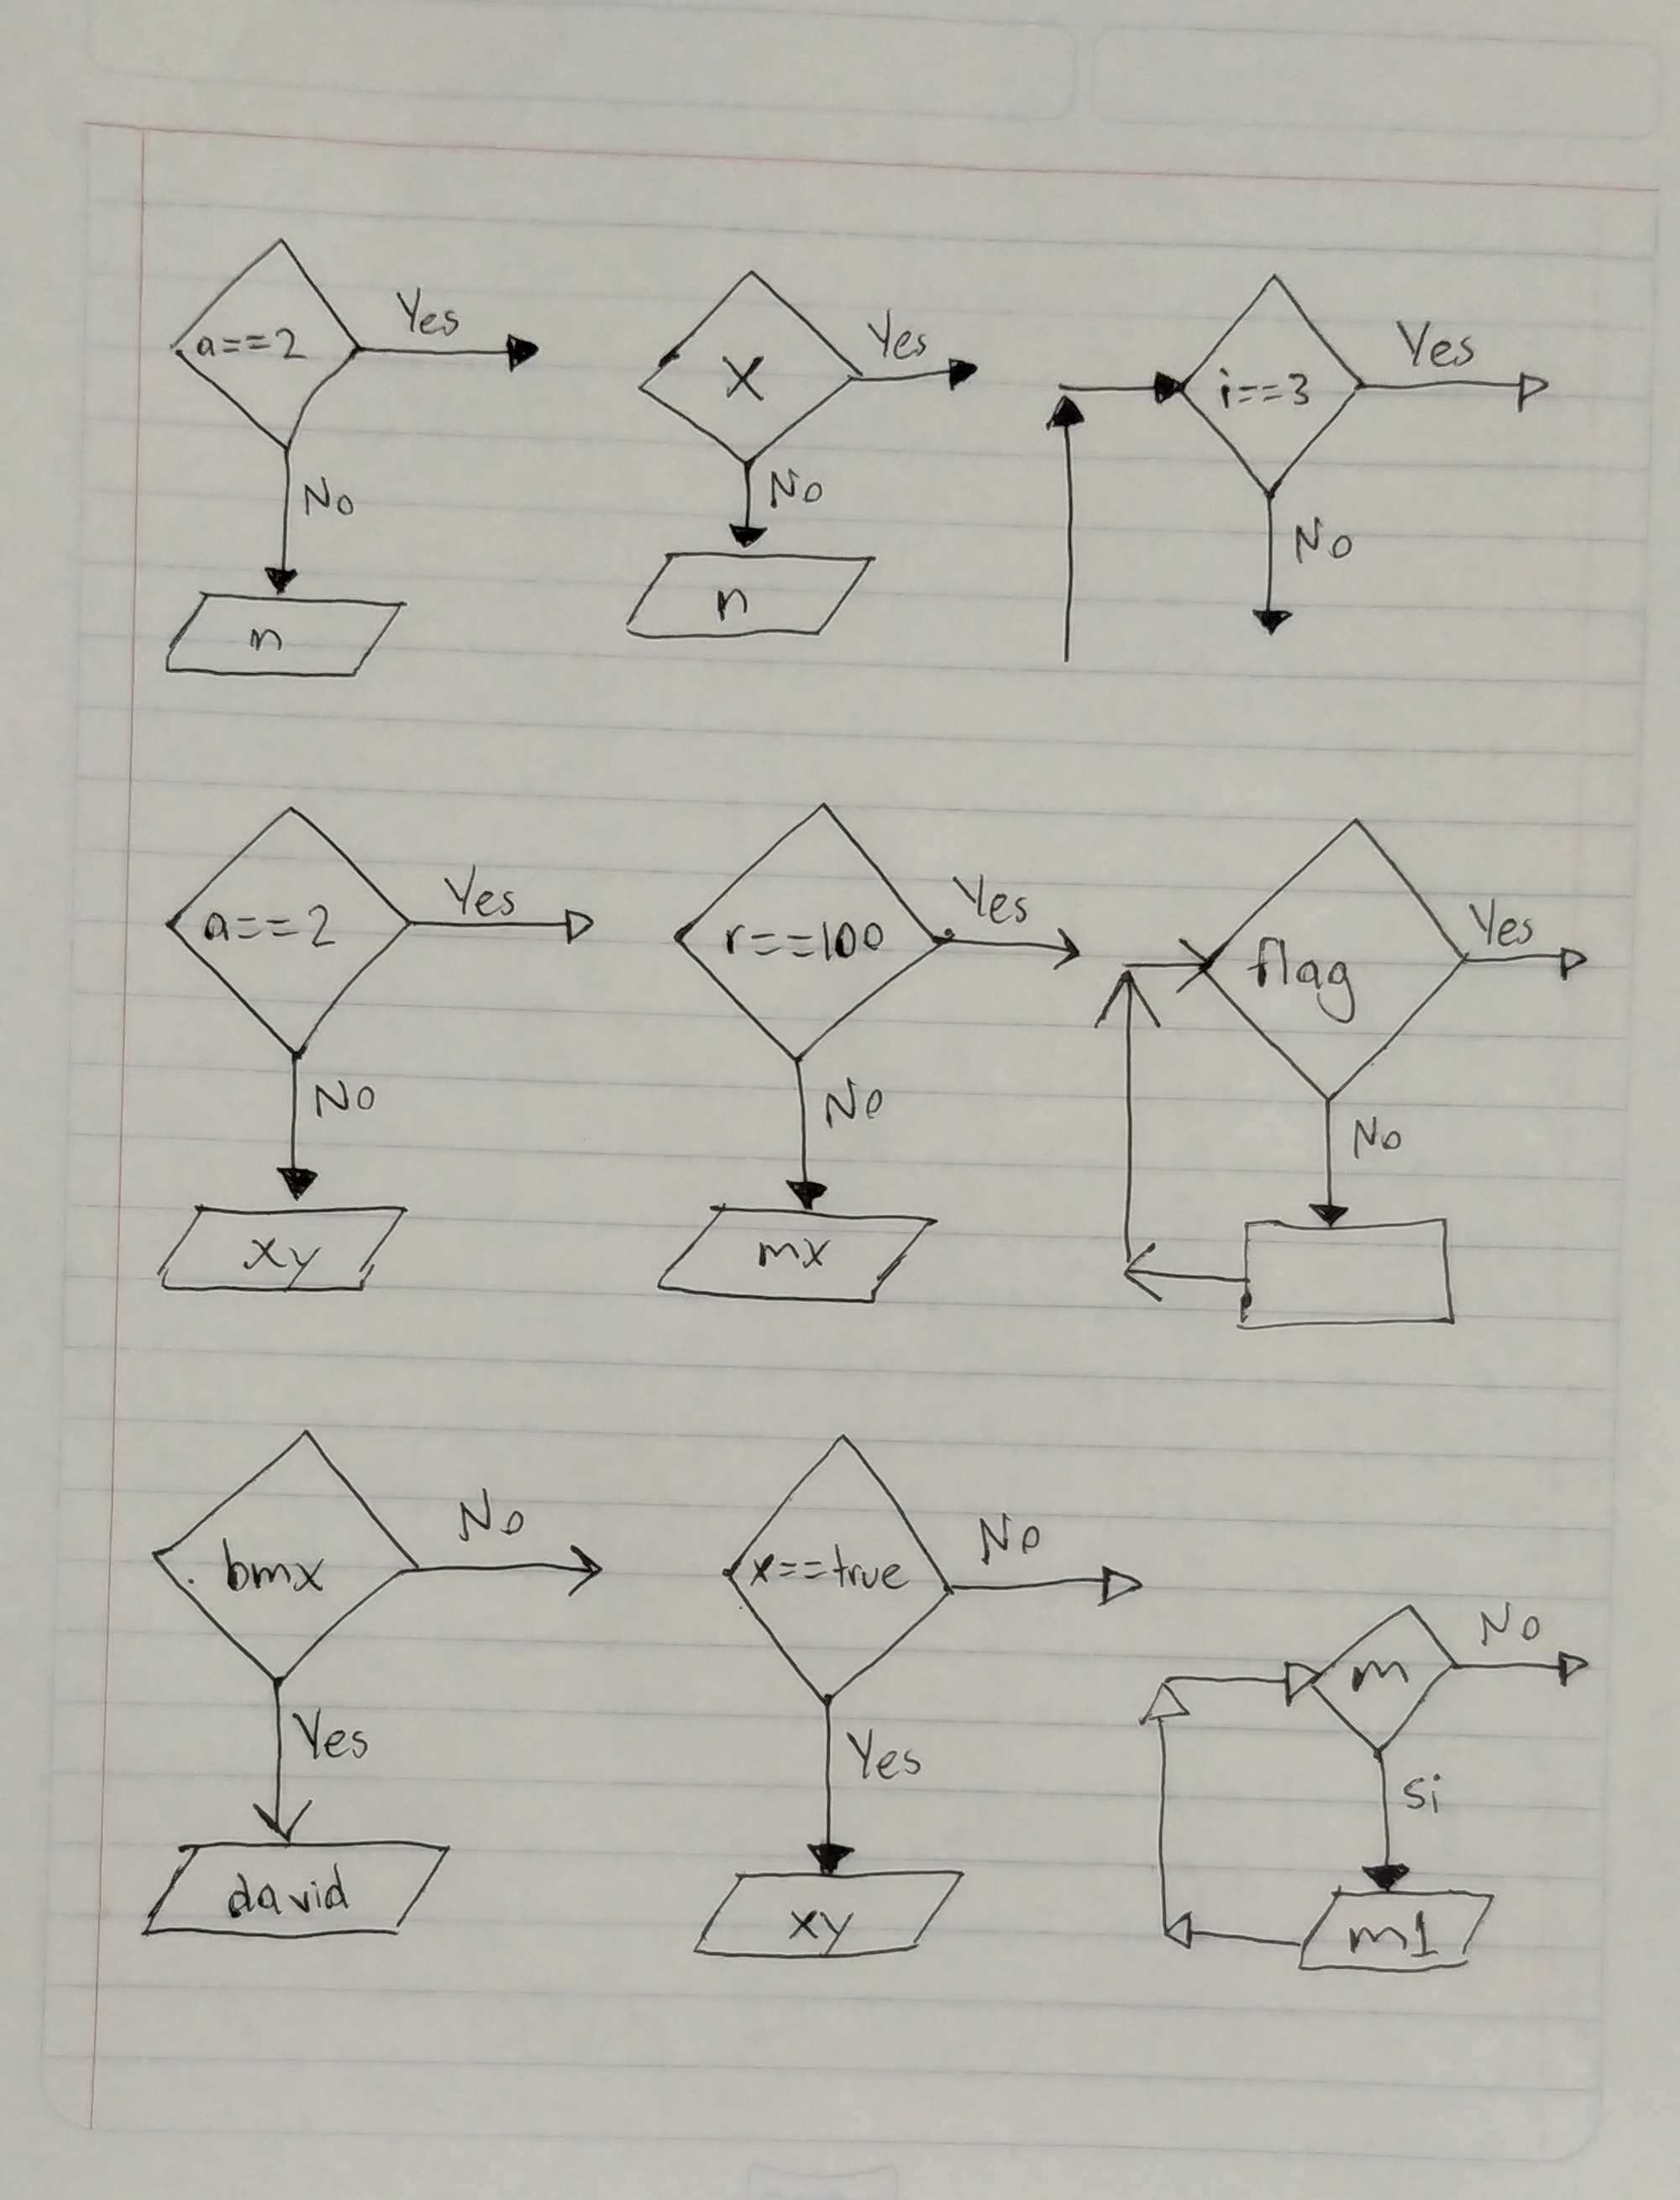 a==2
Yes
No
n
X
Yes
No
n
i==3
Yes
No
a==2
Yes
No
xy
r==100
Yes
No
mx
flag
Yes
No
bmx
No
Yes
david
x==true
No
Yes
xy
m
No
Si
m1